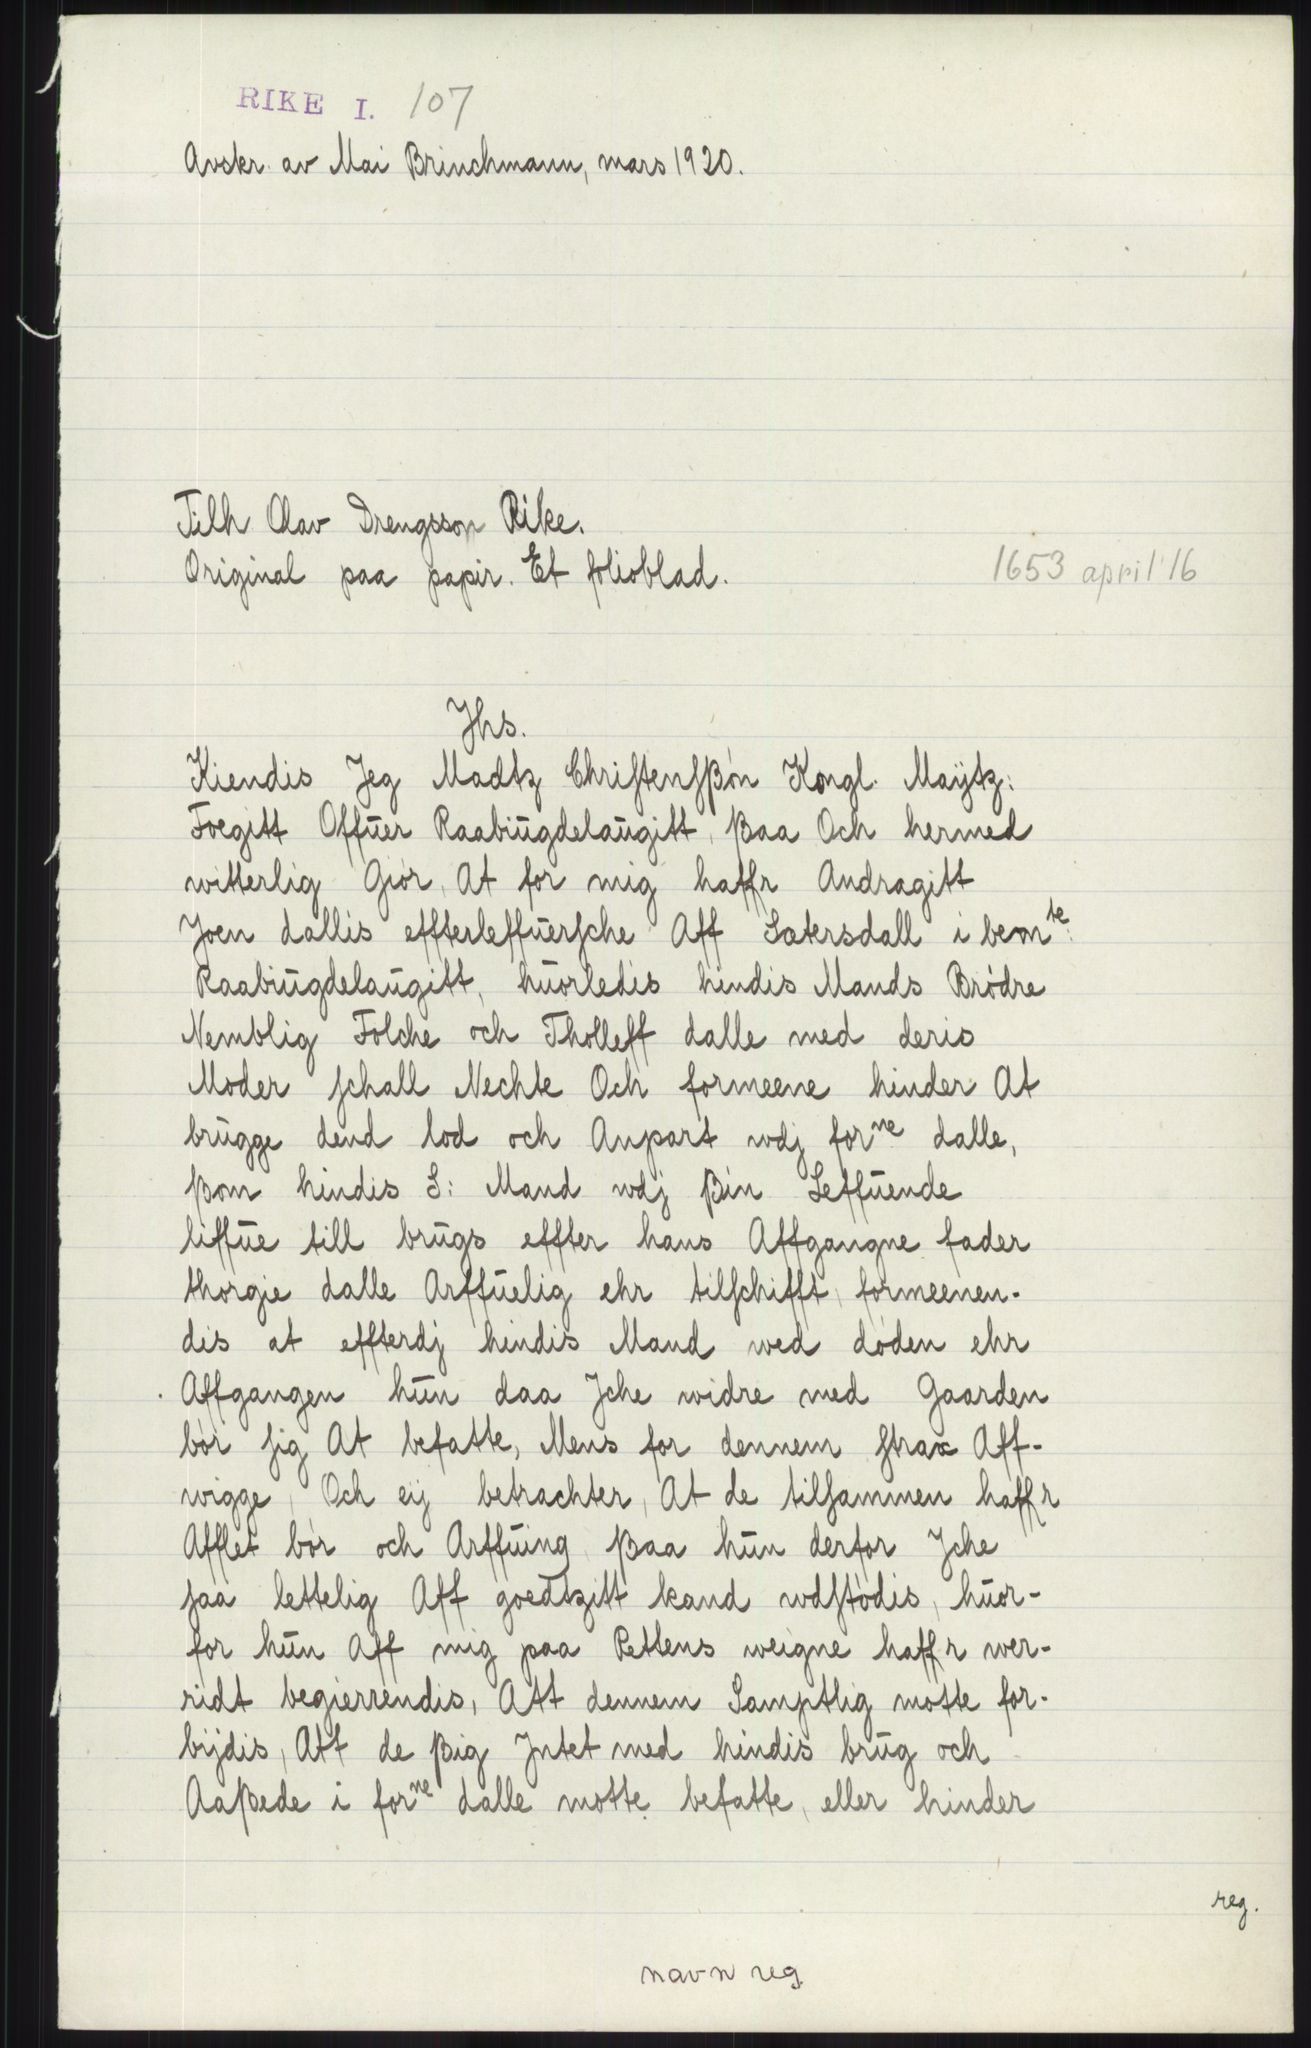 RIKE I. 107
Avskr. av Mai Brinchmann, mars 1920.
Tilh. Olav Drengsson Rike.
Original paa papir. Et folioblad.
1653 april 16
Jhs.
Kiendis Jeg Madtz Chriſtenſßón Kongl. Maÿtz:
Foegitt Offuer Raabiugdelaugitt, ßaa Och hermed
witterlig Giór, At for mig haffr Andragitt
Joen dallis effterleffuerſche Aff Sætersdall i bem<sup>te</sup>:
Raabiugdelaugitt, huorledis hindis Mands Bródre
Nemblig Folche och Tholleff dalle med deris
Moder ſchall Nechte Och formeene hinder At
brugge dend lod och Anpart wdj for<sup>ne</sup> dalle,
ßom hindis S: Mand wdj ßin Leffuende
liffue till brugs effter hans Affgangne fader
thorgie dalle Arffuelig ehr tilſchifft, formeenen-
dis at effterdj hindis Mand wed dóden ehr
Affgangen hun daa Jche widre med Gaarden
bór ſig At befatte, Mens for dennem ſtrax Aff-
wigge, Och eij betrachter, At de tilſammen haffr
Afflet bór och Arffuing ßaa hun derfor Jche
ſaa lettelig Aff goedtzitt kand wdſtódis, huor-
for hun Aff mig paa Rettens weigne haffr wer-
ridt begierrendis, Att dennem Samptlig motte for-
bijdis, Att de ßig Jntet med hindis brug och
Aaßede i for<sup>ne</sup> dalle motte befatte, eller hinder
reg.
navn reg.